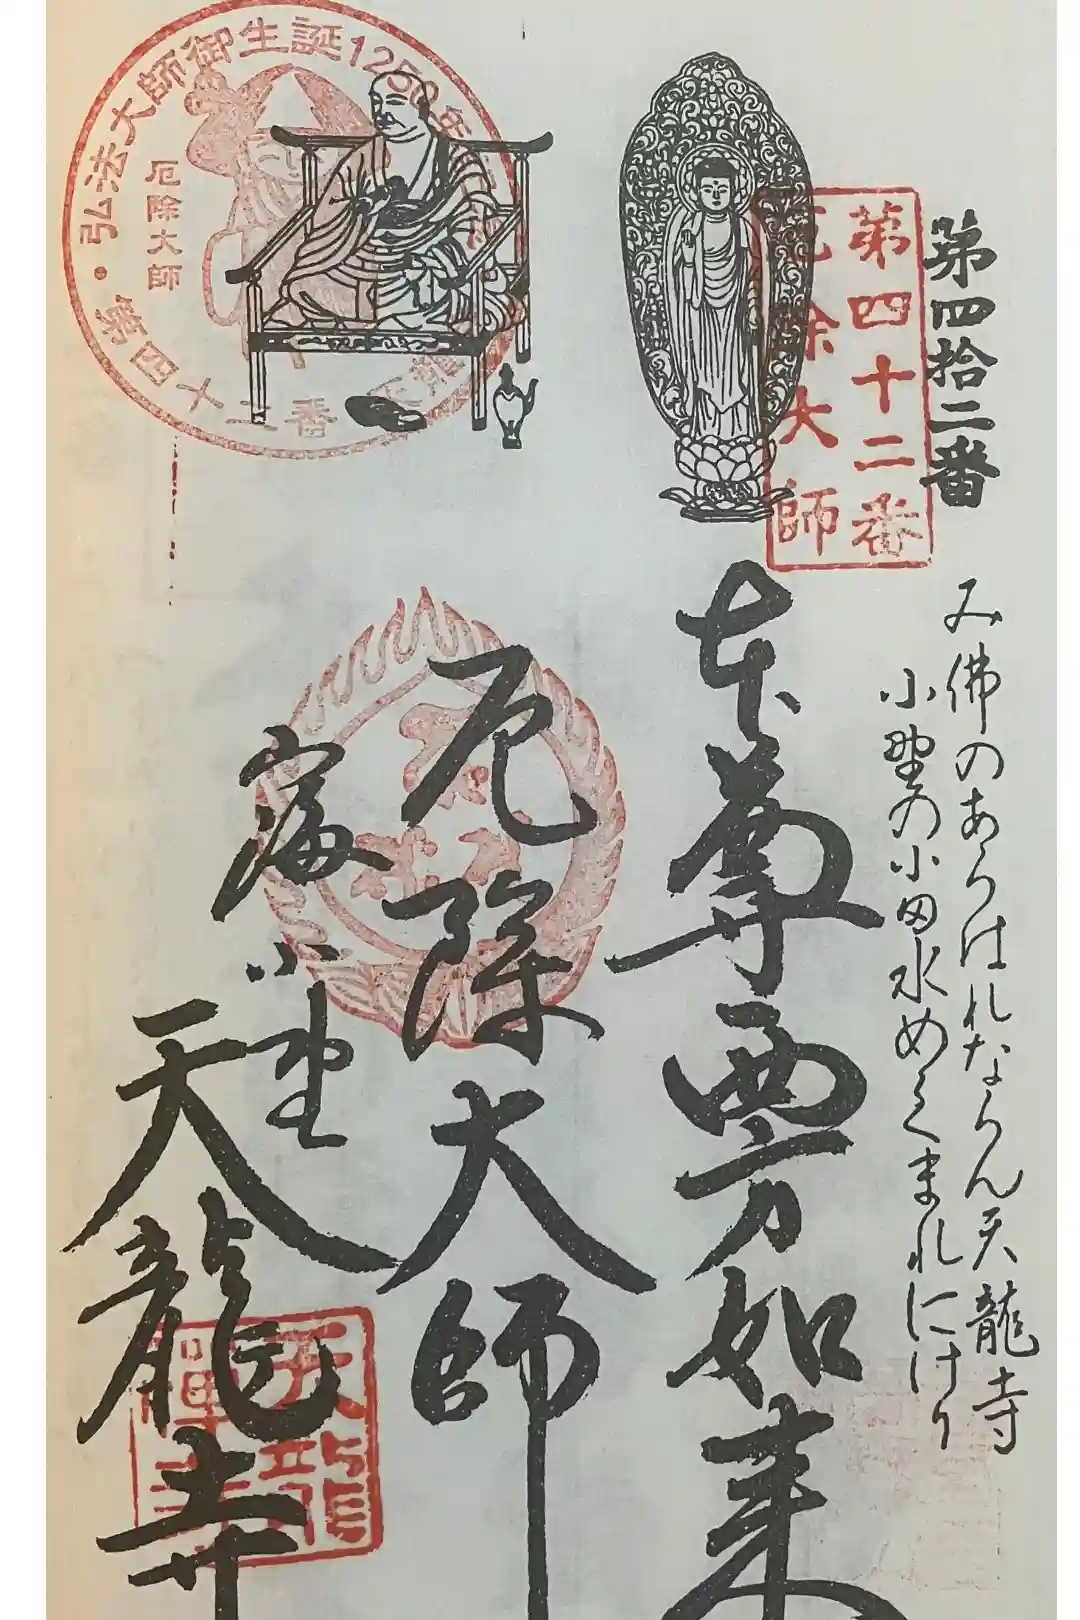 第四拾二番
み佛のあらはれならん天龍寺
小野の小田水めぐまれにけり
第四十二番
厄除大師
本尊西方如来
厄除大師
窪小野
天龍寺
弘法大師御生誕1250年
厄除大師
第四十二番
天龍
禅寺